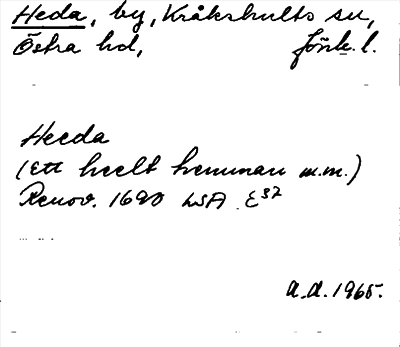 Heda, by, Kråkshults sn,
Östra hd, Jönk. l.
Heeda
(Ett heelt hemman m.m.)
Renov. 1690 LSA E³⁷
A.d. 1965.